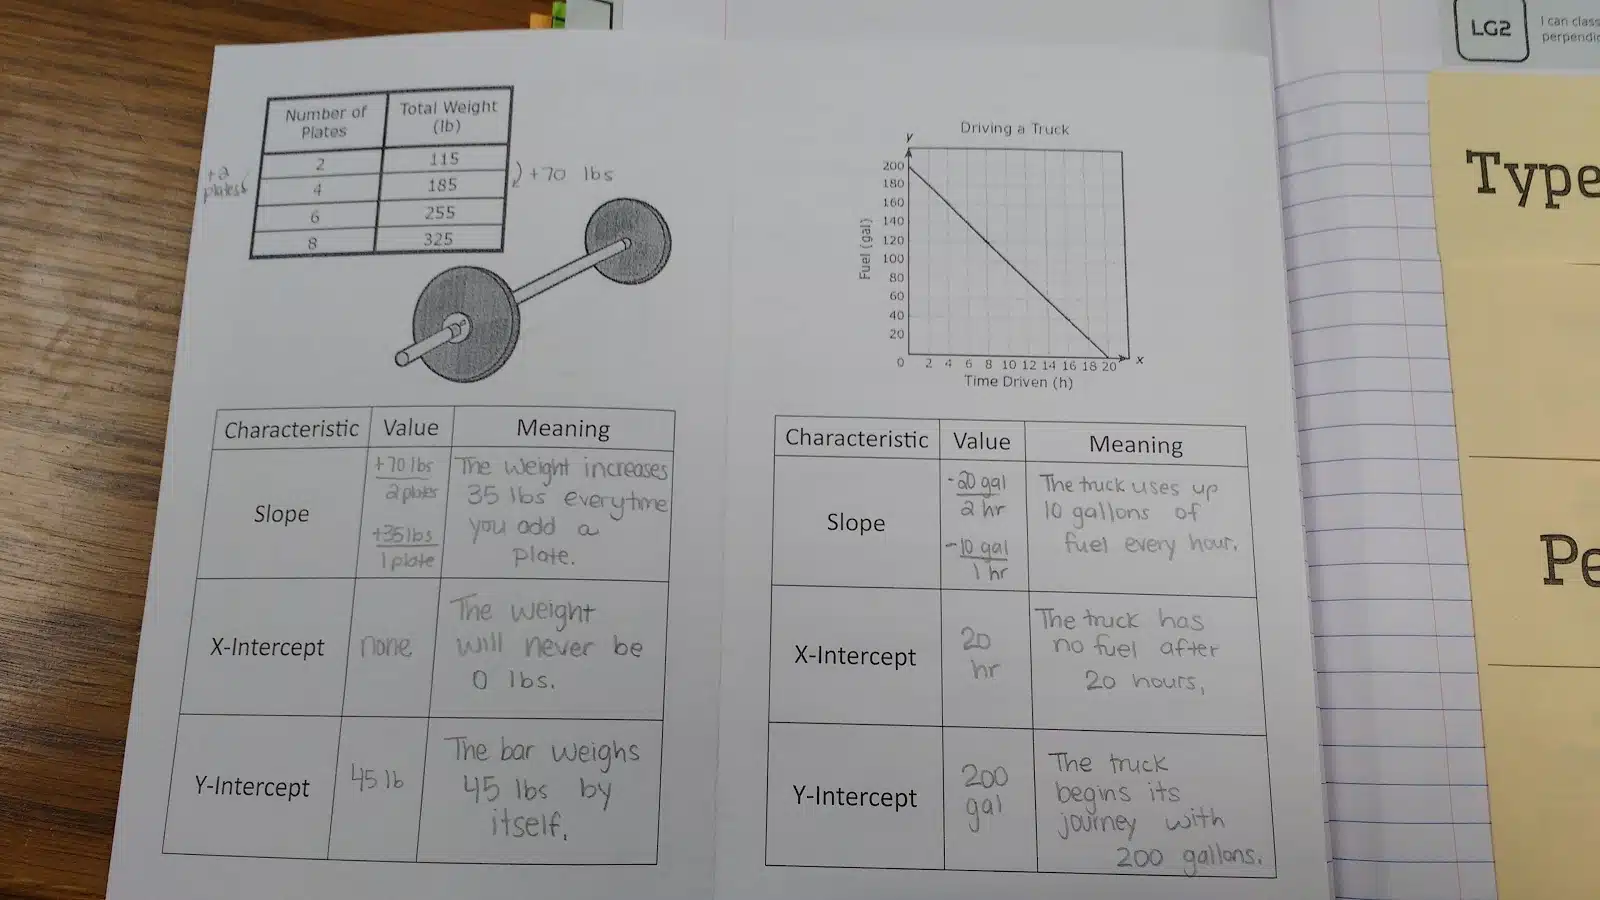 LG2
I can class
perpendic
Type
Pe
Number of
Plates
Total Weight
(lb)
2 115
4 185
6 255
8 325
+2
plates
+70 lbs
Driving a Truck
y
Fuel (gal)
200
180
160
140
120
100
80
60
40
20
0 2 4 6 8 10 12 14 16 18 20
x
Time Driven (h)
Characteristic Value Meaning
Slope
+70 lbs
2 plates
+35 lbs
1 plate
The weight increases
35 lbs everytime
you add a
plate.
X-Intercept
none
The weight
will never be
0 lbs.
Y-Intercept
45 lb
The bar weighs
45 lbs by
itself.
Characteristic Value Meaning
Slope
-20 gal
2 hr
-10 gal
1 hr
The truck uses up
10 gallons of
fuel every hour.
X-Intercept
20
hr
The truck has
no fuel after
20 hours,
Y-Intercept
200
gal
The truck
begins its
journey with
200 gallons.